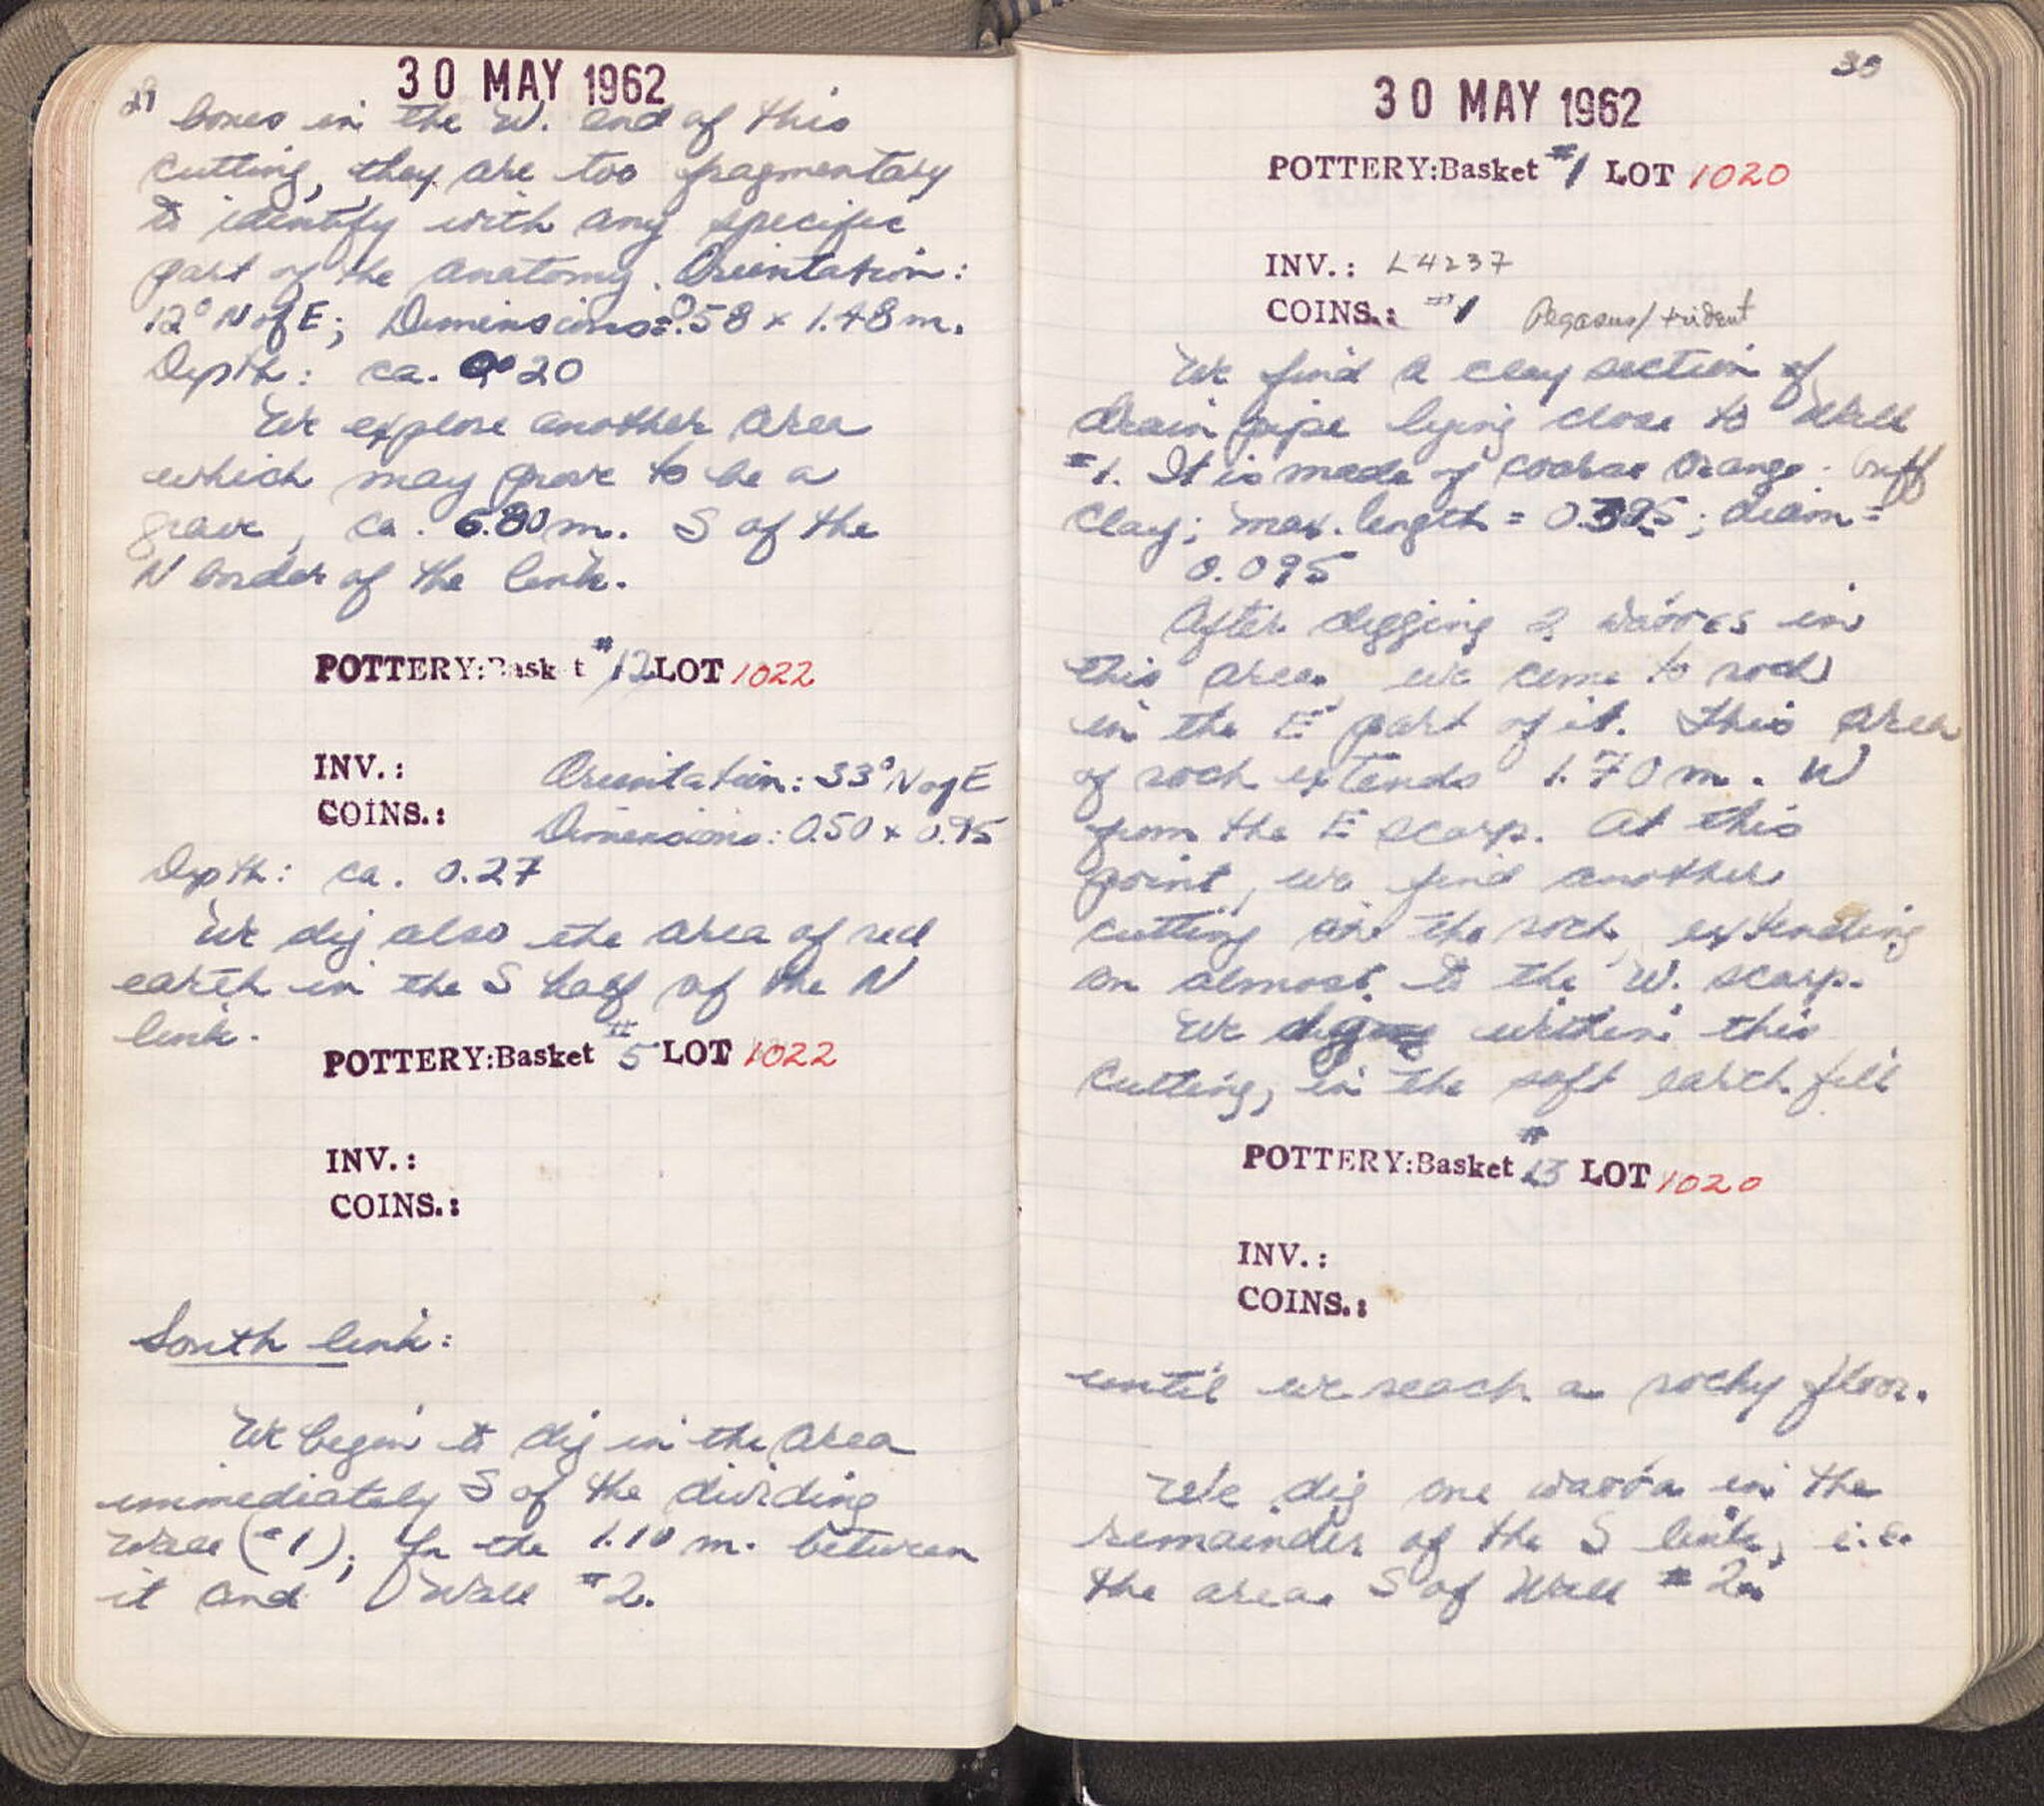 29
30 MAY 1962
bones in the W. end of this
cutting, they are too fragmentary
to identify with any specific
part of the anatomy. Orientation:
12° N of E; Dimensions = 0.58 x 1.48 m.
Depth: ca. 0.20
We explore another area
which may prove to be a
grave, ca. 6.80 m. S of the
N border of the link.
POTTERY: Basket #12 LOT 1022
INV.:
Orientation: 33° N of E
COINS.:
Dimensions: 0.50 x 0.95
Depth: ca. 0.27
We dig also the area of red
earth in the S half of the N
link.
POTTERY:Basket #5 LOT 1022
INV.:
COINS.:
South link:
We begin to dig in the area
immediately S of the dividing
wall (#1), in the 1.10 m. between
it and Wall #2.
30
30 MAY 1962
POTTERY:Basket #1 LOT 1020
INV.: L4237
COINS.: #1 Pegasus/trident
We find a clay section of
drain pipe lying close to Wall
#1. It is made of coarse orange-buff
clay; max. length = 0.395; diam =
0.095
After digging 2 πάσσες in
this area, we come to rock
in the E part of it. This area
of rock extends 1.70 m. W
from the E scarp. At this
point, we find another
cutting in the rock, extending
on almost to the W. scarp.
We dig within this
cutting, in the soft earth fill
POTTERY:Basket #13 LOT 1020
INV.:
COINS.:
until we reach a rocky floor.
We dig one πάσσα in the
remainder of the S link, i.e.
the area S of Wall #2.